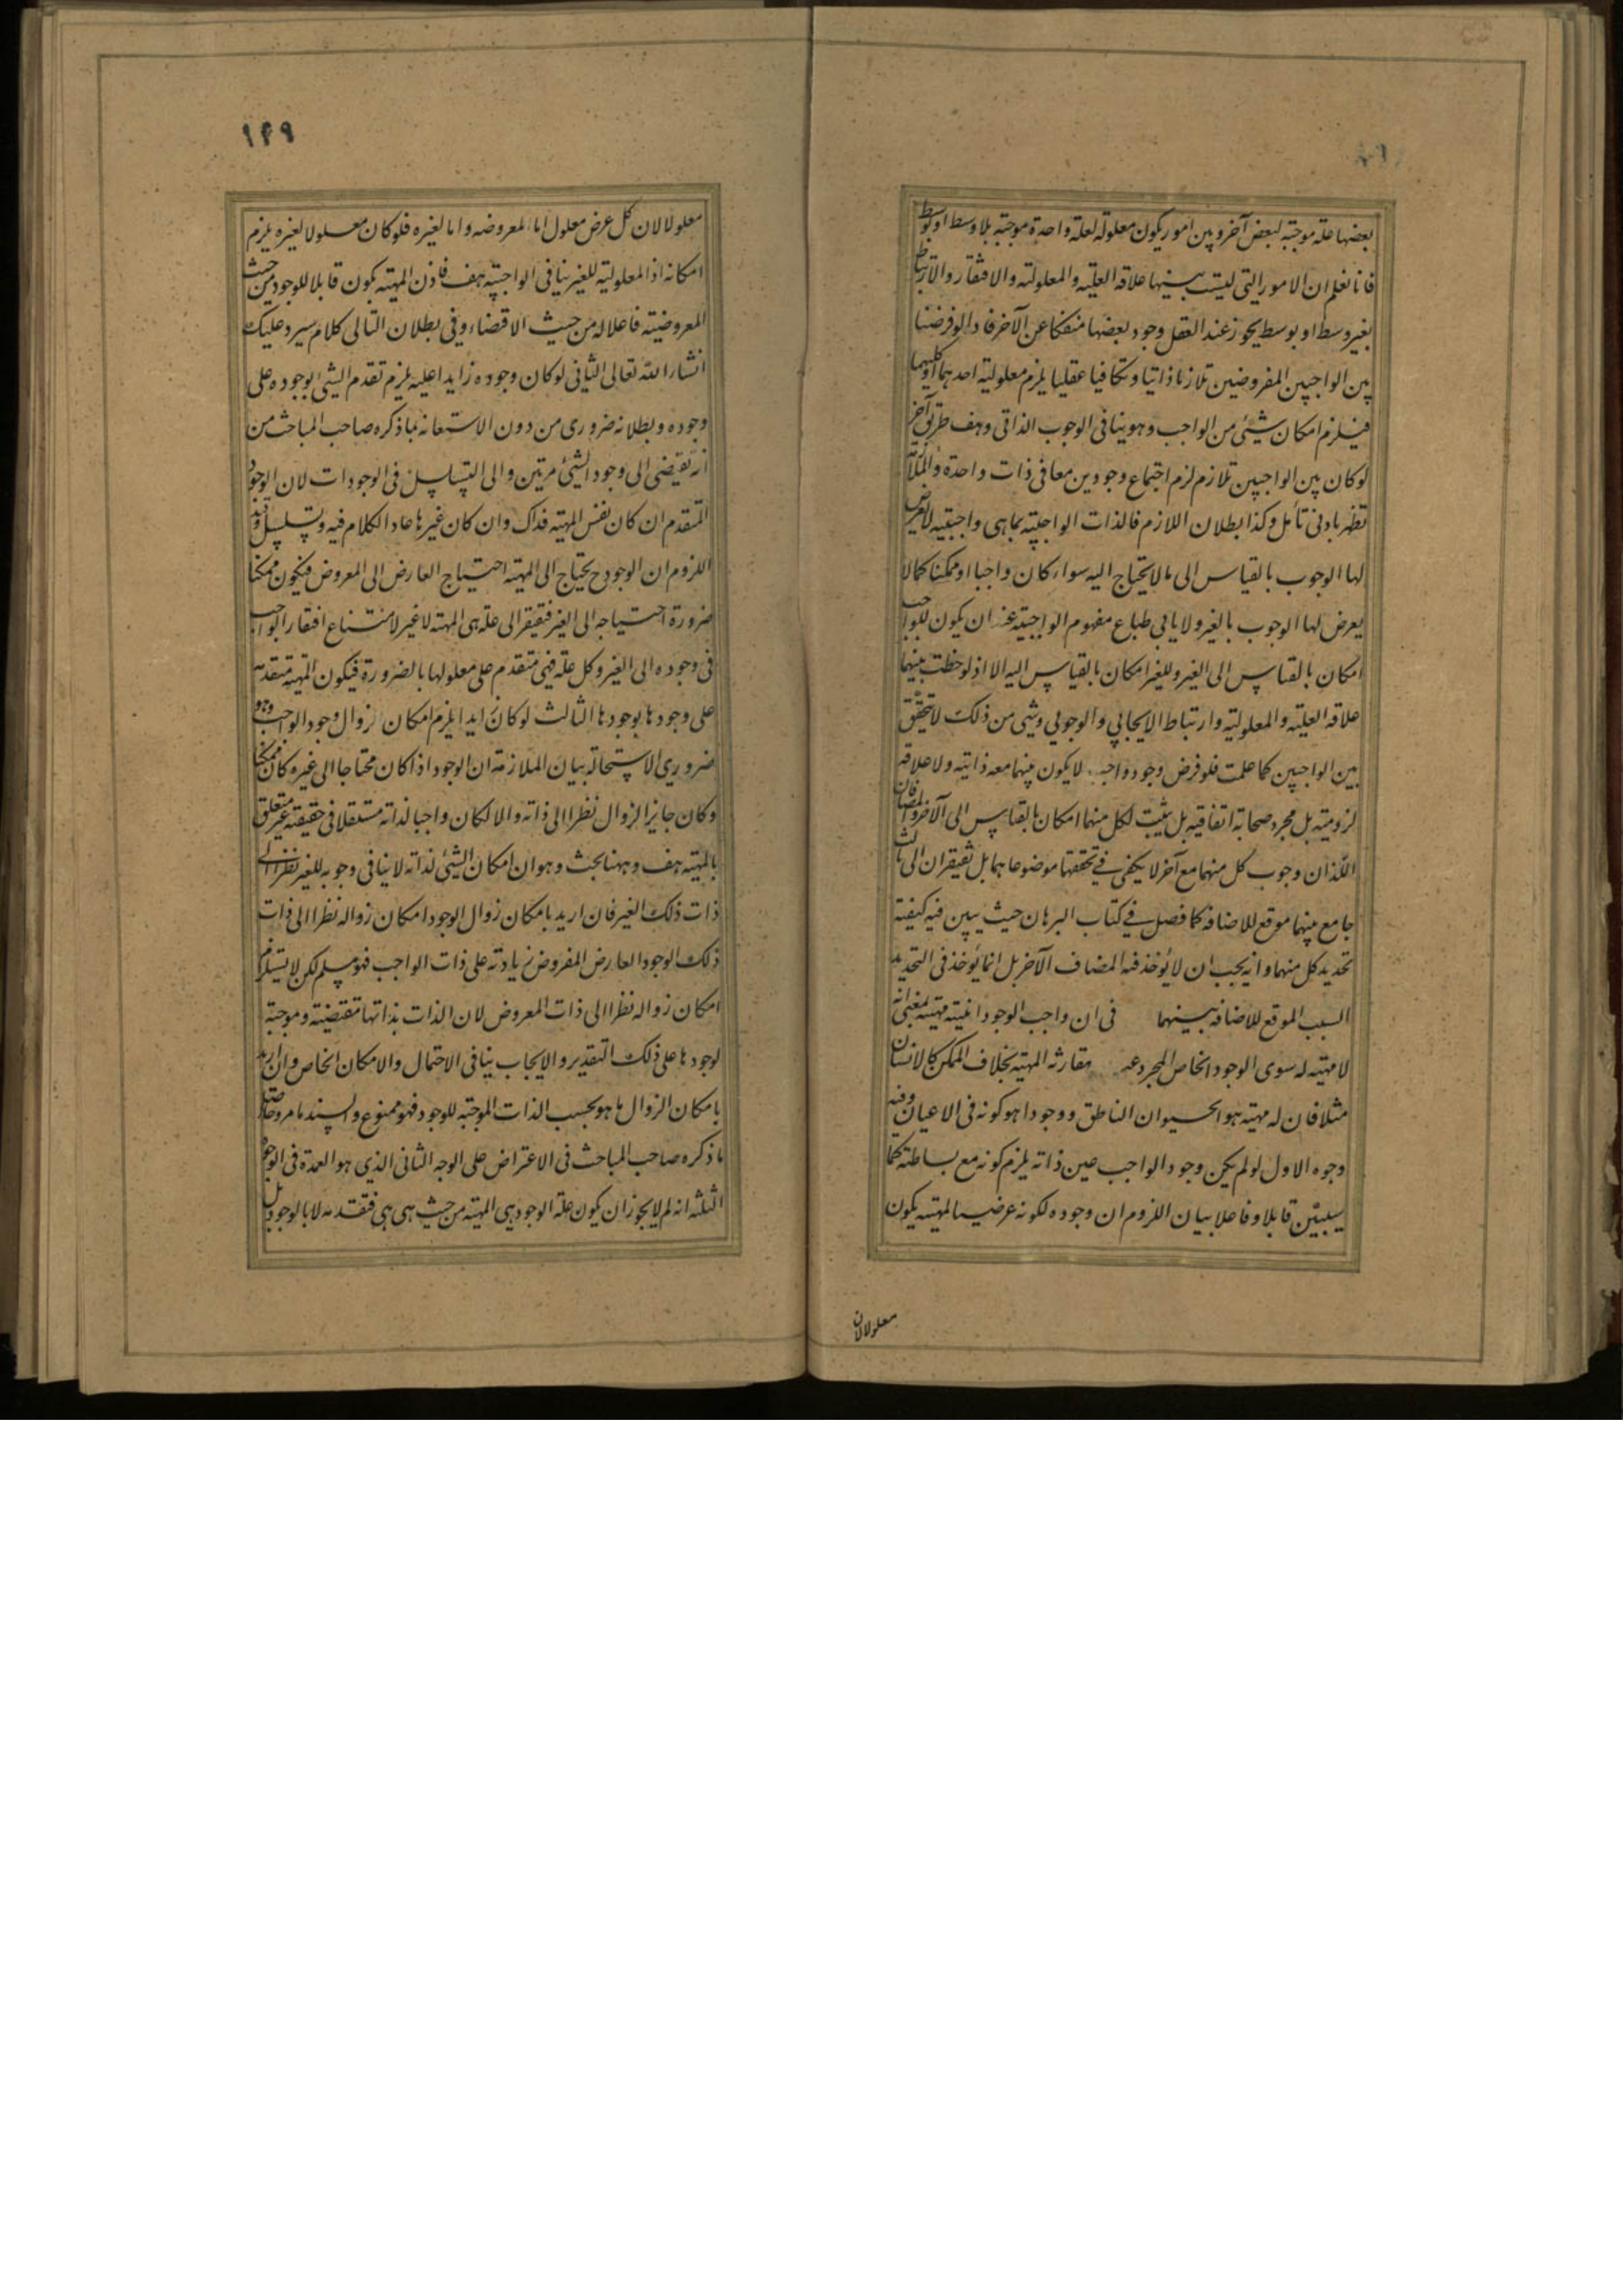 بعضها علة موجبة لبعض آخر وبين امور يكون معلولة لعلة واحدة موجبة بلا وسط او بوسط
فانا نعلم ان الامور التي ليست بينها علاقة العلية والمعلولية والافتقار والارتباط
بغير وسط او بوسط يجوز عند العقل وجود بعضها منفكا عن الآخر فاذا لو فرضنا
بين الواجبين المفروضين تلازما ذاتيا وتكافيا عقليا يلزم معلولية احدهما او كليهما
فيلزم امكان شيئ من الواجب وهو ينافى الوجوب الذاتى وهف طريق آخر
لو كان بين الواجبين تلازم لزم اجتماع وجودين معا فى ذات واحدة والملازمة
تظهر بادنى تأمل وكذا بطلان اللازم فالذات الواجبية بما هى واجبية لا يعرض
لها الوجوب بالقياس الى ما لا يحتاج اليه سواء كان واجبا او ممكنا كما لا
يعرض لها الوجوب بالغير ولا يابى طباع مفهوم الواجبية عند ان يكون للواجب
امكان بالقياس الى الغير وللغير امكان بالقياس اليه الا اذ لوحظت بينهما
علاقة العلية والمعلولية وارتباط الايجابي والوجوبي وشئ من ذلك لا يتحقق
بين الواجبين كما علمت فلو فرض وجود واجب لا يكون بينهما معه ذاتية ولا علاقة
لزومية بل مجرد صحابة اتفاقية بل يثبت لكل منهما امكان بالقياس الى الآخر والمضافان
اللذان وجوب كل منهما مع آخر لا يكفى في تحققها موضوعاهما بل تفيقران الى ثالث
جامع بينهما موقع للاضافة كما فصل في كتاب البرهان حيث يبين فيه كيفية
تحديد كل منهما وانه يجب ان لا يؤخذ فيه المضاف الآخر بل انما يؤخذ فى التحديد
السبب الموقع للاضافة بينهما فى ان واجب الوجود انيته مهيته بمعنى انه
لا مهية له سوى الوجود الخاص المجرد عن مقارنة المهية بخلاف الممكن كالانسان
مثلا فان له مهية هو الحيوان الناطق ووجودا هو كونه فى الاعيان وفيه
وجوه الاول لو لم يكن وجود الواجب عين ذاته يلزم كونه مع بساطته كما
سيبيّن قابلا وفاعلا بيان اللزوم ان وجوده لكونه عرضيا لمهيته يكون
معلولا لان
١٤٩
معلولا لان كل عرض معلول اما لمعروضه واما لغيره فلو كان معلولا لغيره يلزم
امكانه اذ المعلولية للغير ينافى الواجبية هف فاذن المهية يكون قابلا للوجود من حيث
المعروضية فاعلا له من حيث الاقتضاء وفى بطلان التالى كلام سيرد عليك
انشاء الله تعالى الثانى لو كان وجوده زايدا عليه يلزم تقدم الشيئ بوجوده على
وجوده وبطلانه ضرورى من دون الاستعانة بما ذكره صاحب المباحث من
انه تقيضى الى وجود الشيئ مرتين والى التسلسل فى الوجودات لان الوجود
المتقدم ان كان نفس المهية فذاك وان كان غيرها عاد الكلام فيه وتسلسل وجه
اللزوم ان الوجود ح يحتاج الى المهية احتياج العارض الى المعروض فيكون ممكنا
ضرورة احتياجه الى الغير فيقتقر الى علة هى المهية لا غير لامتناع افتقار الواجب
فى وجوده الى الغير وكل علة فهى متقدم على معلولها بالضرورة فيكون المهية متقدمة
على وجودها بوجودها الثالث لو كان زايدا يلزم امكان زوال وجود الواجب وهو
ضروري الاستحالة بيان الملازمة ان الوجود اذا كان محتاجا الى غيره كان ممكنا
وكان جايز الزوال نظرا الى ذاته والا لكان واجبا لذاته مستقلا فى حقيقته غير متعلق
بالمهية هف وههنا بحث وهو ان امكان الشيئ لذاته لا ينافى وجوبه للغير نظرا الى
ذات ذلك الغير فان اريد بامكان زوال الوجود امكان زواله نظرا الى ذات
ذلك الوجود العارض المفروض زيادته على ذات الواجب فهو مسلم لكن لا يستلزم
امكان زواله نظرا الى ذات المعروض لان الذات بذاتها مقتضية وموجبة
لوجودها على ذلك التقدير والايجاب ينافى الاحتمال والامكان الخاص وان اريد
بامكان الزوال ما هو بحسب الذات الموجبة للوجود فهو ممنوع والسند ما مر وحاصل
ما ذكره صاحب المباحث فى الاعتراض على الوجه الثانى الذي هو العمدة فى الوجوه
الثلثة انه لم لا يجوز ان يكون علة الوجود هى المهية من حيث هى هى فتقدمه لا بالوجود بل